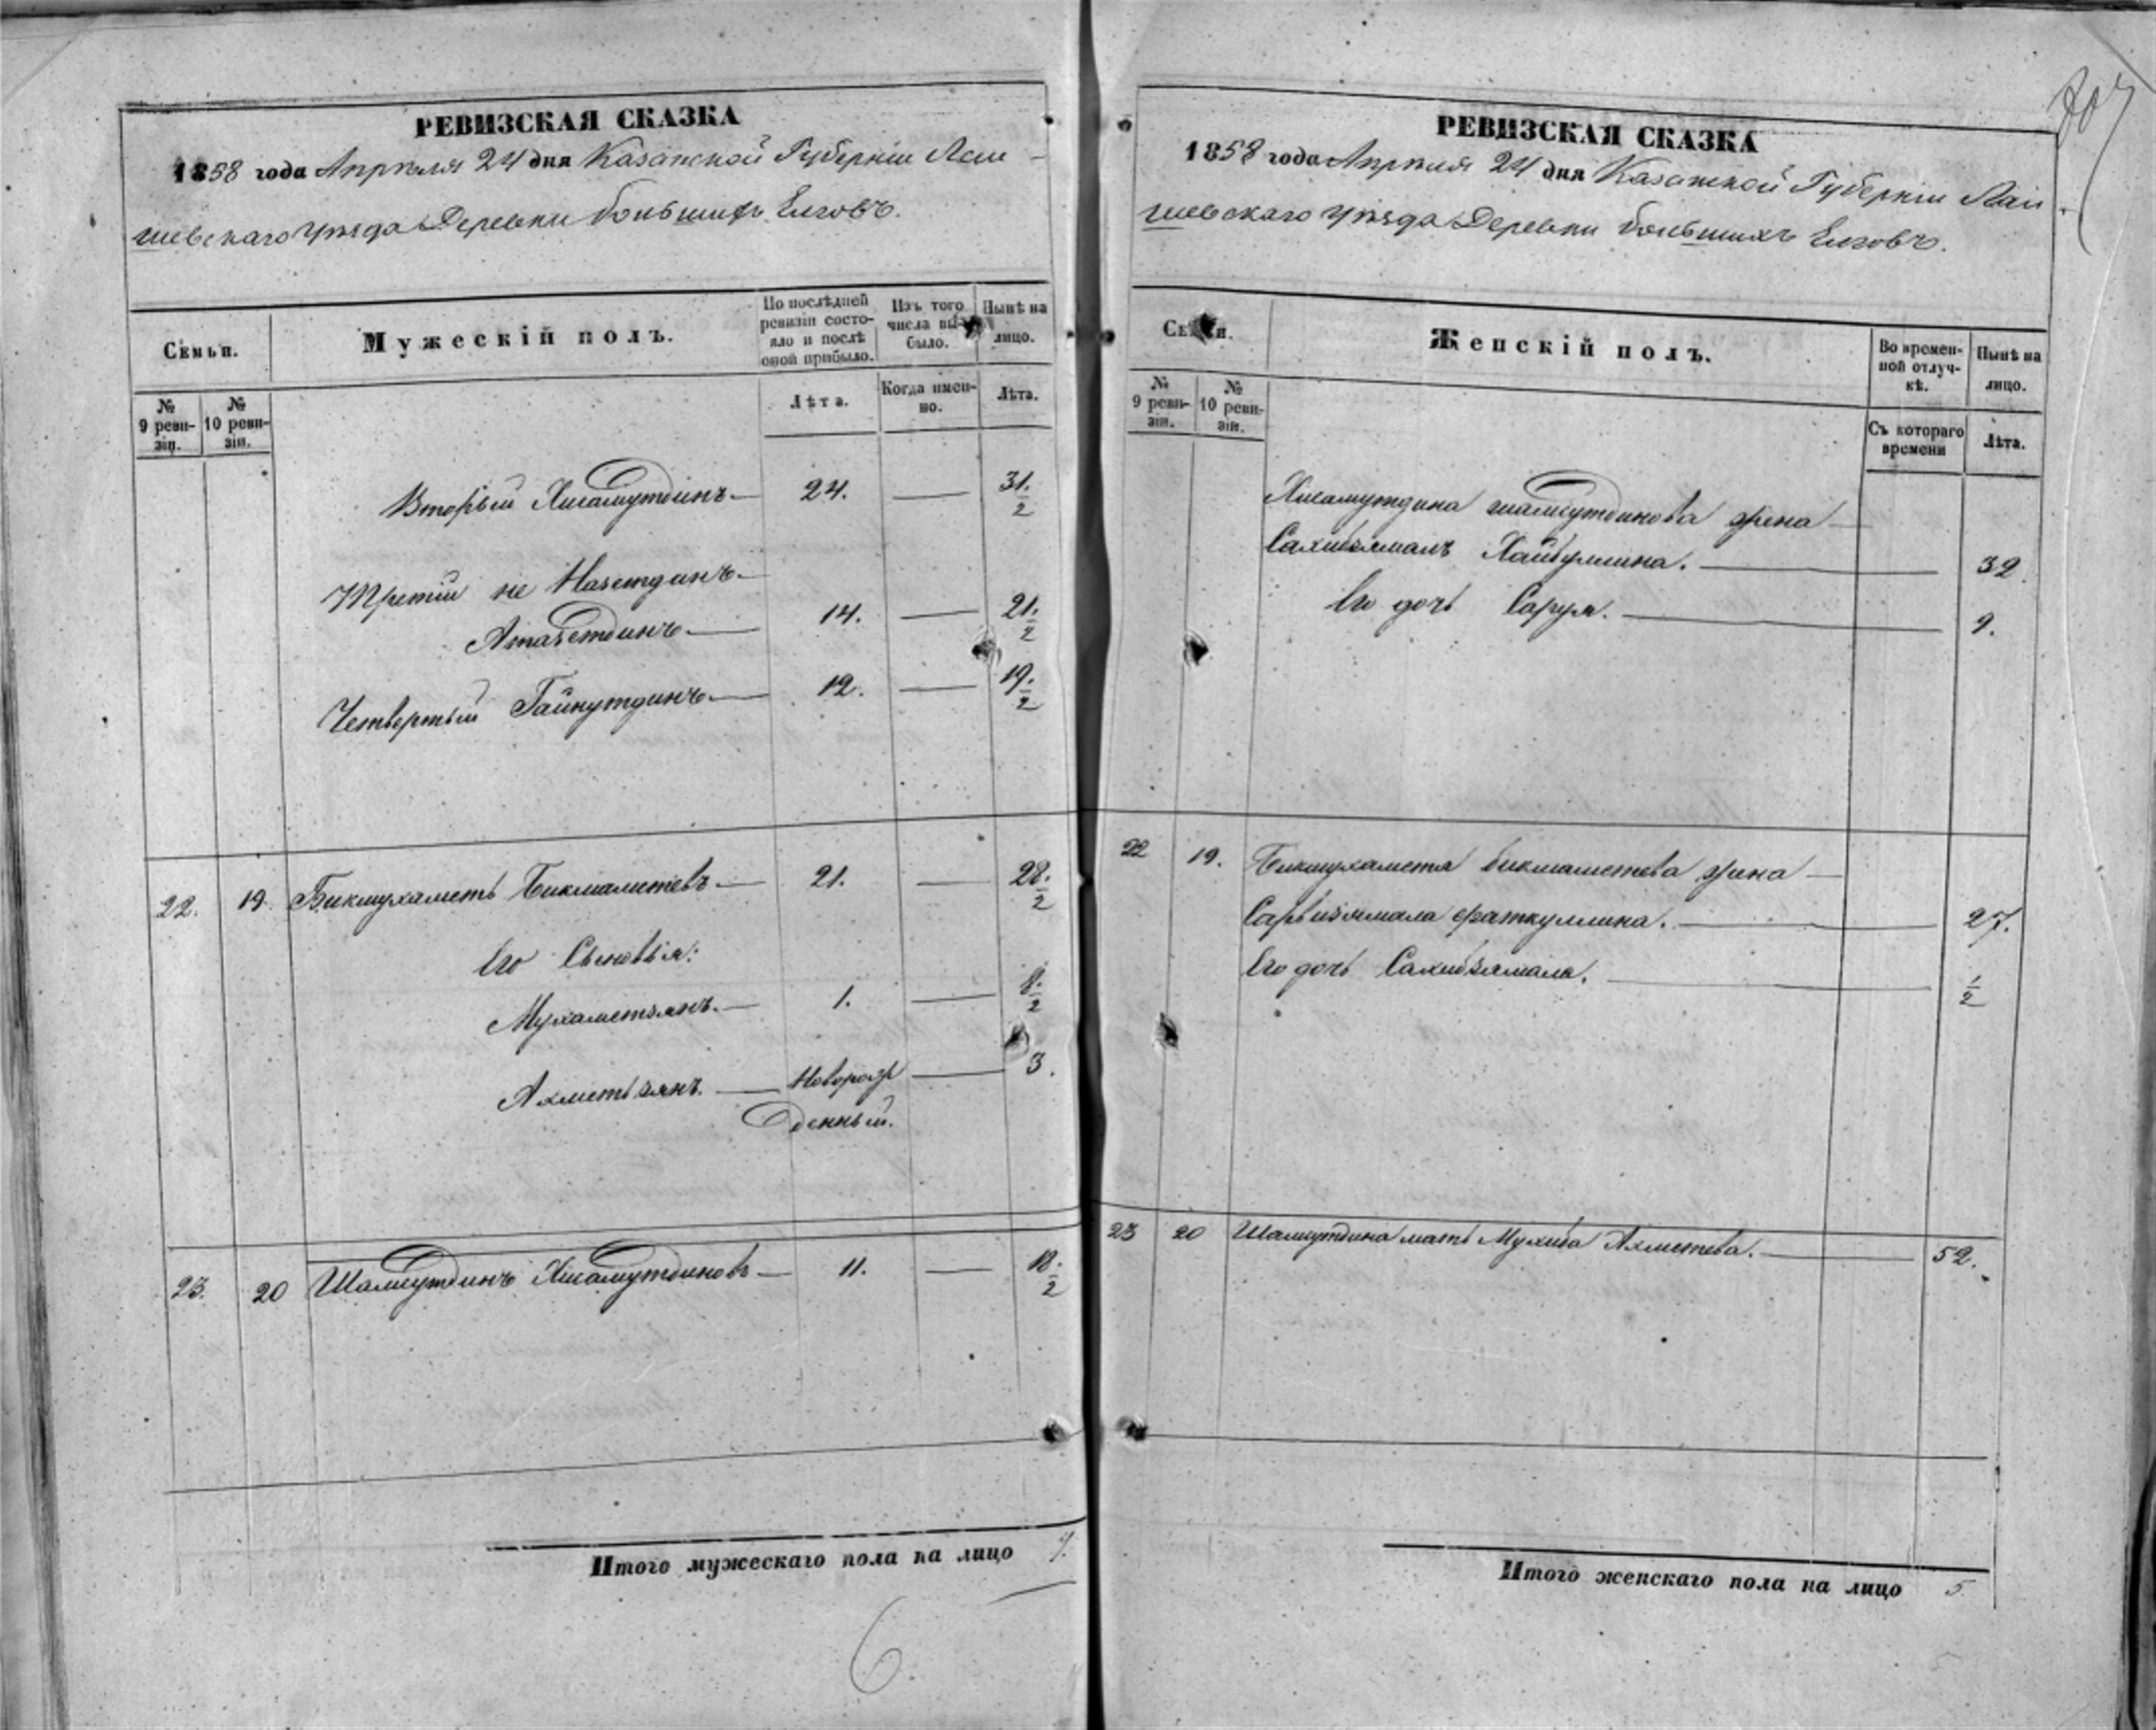 РЕВИЗСКАЯ СКАЗКА
1858 года Апрѣля 24 дня Казанской Губерніи Лаи-
шевскаго уѣзда Деревни большихъ Елговъ.
Семьи.
Мужескій полъ.
По послѣдней ревизіи состояло и послѣ оной прибыло.
Изъ того числа выбыло.
Нынѣ на лицо.
№ 9 ревизіи.
№ 10 ревизіи.
Лѣта.
Когда именно.
Лѣта.
Вторый Хисамутдинъ — 24. — 31. 1/2
Третій не Назетдинъ —
Атазетдинъ — 14. — 21. 1/2
Четвертый Гайнутдинъ — 12. — 19. 1/2
22. 19. Бикмухаметъ Бикмаметевъ — 21. — 28. 1/2
Его Сыновья:
Мухаметзянъ. — 1. — 8. 1/2
Ахметьзянъ. — Новорож — 3.
денный.
23. 20 Шамсутдинъ Хисамутдиновъ — 11. — 18. 1/2
Итого мужескаго пола на лицо 7.
6.
РЕВИЗСКАЯ СКАЗКА
1858 года Апрѣля 24 дня Казанской Губерніи Лаи-
шевскаго уѣзда Деревни большихъ Елговъ.
Семьи.
Женскій полъ.
Во временной отлучкѣ.
Нынѣ на лицо.
№ 9 ревизіи.
№ 10 ревизіи.
Съ котораго времени
Лѣта.
Хисамутдина шамсутдинова жена —
Сахибзямалъ Хайбуллина. — 32.
Его дочь Саруя. — 9.
22 19. Бикмухаметя бикмаметева жена —
Сарвизямала фаткуллина. — 27.
Его дочь Сахибзямала. — 1/2
23 20 Шамсутдина мать Мухиба Ахметева. — 52.
Итого женскаго пола на лицо 5